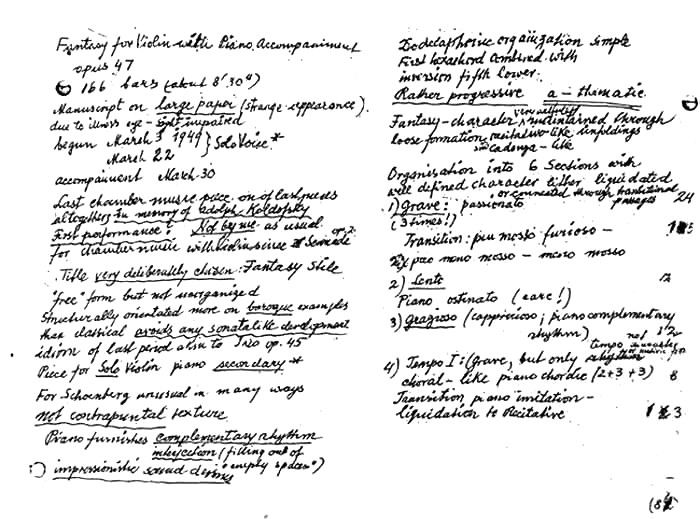 Fantasy for Violin with Piano Accompaniment
opus 47
166 bars (about 8'30")
Manuscript on large paper (strange appearance)
due to illness eye - sight impaired
begun March 3 1949 } Solo Voice *
March 22
accompaniment March 30
Last chamber music piece on of last pieces
altogether: In memory of Adolph Koldofsky
First performance! Not by me as usual
for chamber music with violin since Serenade
Title very deliberately chosen: Fantasy Style
"free" form but not unorganized
Structurally orientated more on baroque examples
than classical avoids any sonatalike development
idiom of last period akin to Trio op. 45
Piece for Solo Violin piano secondary *
For Schoenberg unusual in many ways
not contrapuntal texture
Piano furnishes complementary rhythm
interjection (filling out of
impressionistic sound "empty spaces")
Dodecaphonic organization simple
First hexachord combined with
inversion fifth lower.
Rather progressive a - thematic.
Fantasy - character very maintained through
loose formation, recitative-like unfoldings
and Cadenza - like
Organisation into 6 Sections with
well defined character either liquidated
or connected through transitional
1) Grave: passionato passages 24
(3 times!)
Transition: piu mosso furioso -
piu meno mosso - meno mosso
2) Lento 12
Piano ostinato (care!)
3) grazioso (cappricioso; piano complementary
rhythm)
4) Tempo I: (Grave, but only tempo not
choral - like piano chordic (2+3+3) 8
Transition piano imitation -
liquidation to Recitative